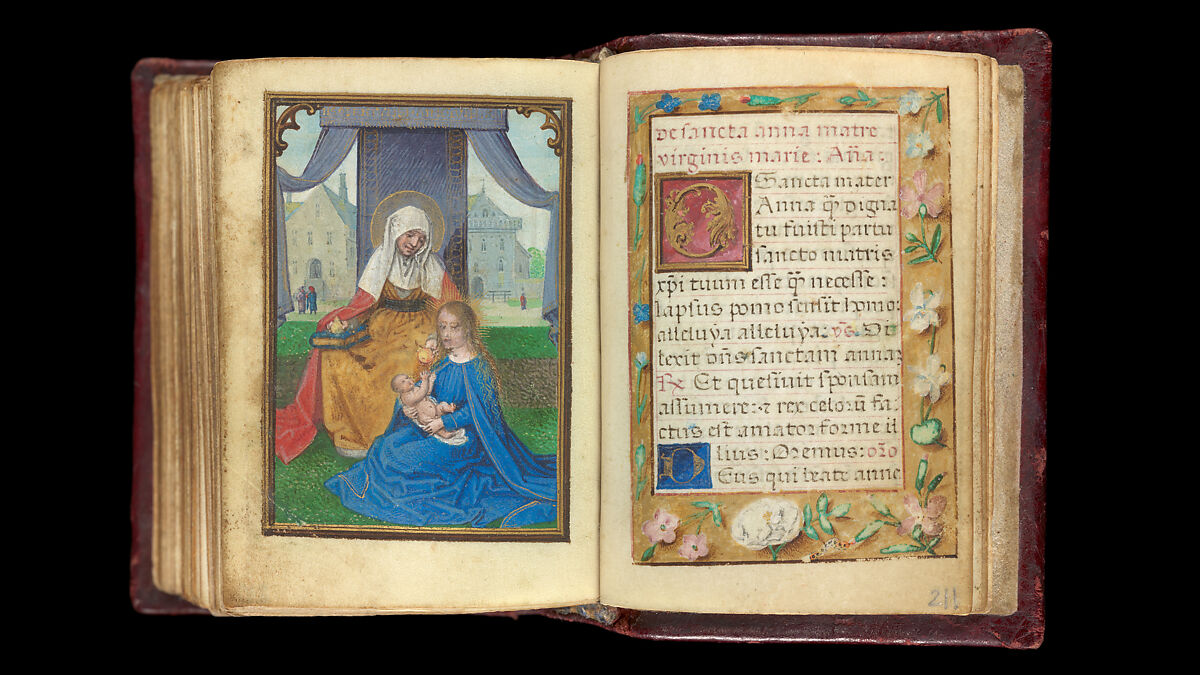 De sancta anna matre
virginis marie : Ana :
O Sancta mater
Anna q̄ digna
tu fuisti partu
sancto matris
xp̄i tuum esse q̄ necesse :
lapsus pomo scissit homo :
alleluya alleluya : vs. Di
lexit dn̄s sanctam annā
Rx Et quesiuit sponsam
assumere : ⁊ rex celorū fa
ctus est amator forme il
lius : Oremus : oro
Deus qui beate anne
211